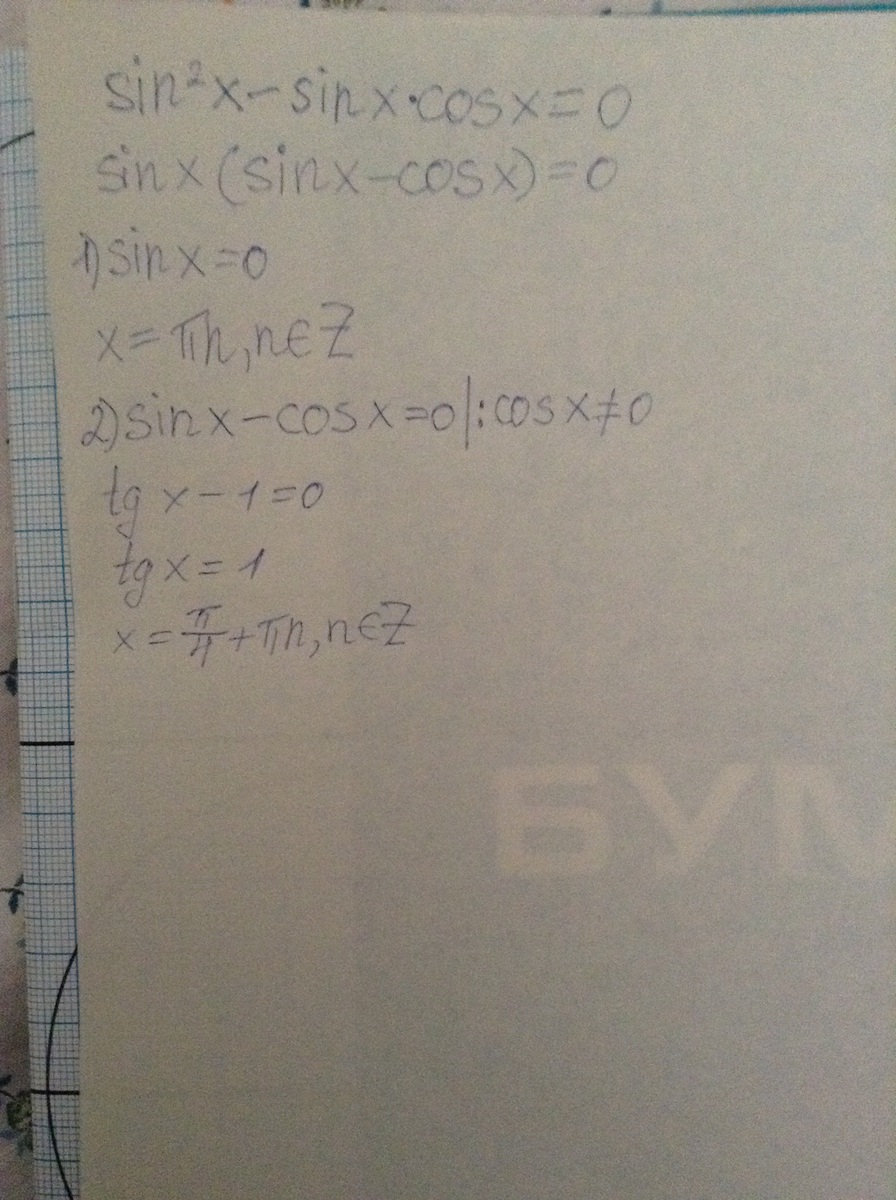 sin²x-sinx·cosx=0
sinx(sinx-cosx)=0
1)sinx=0
x=πn,n∈Z
2)sinx-cosx=0|:cosx≠0
tgx-1=0
tgx=1
x=π/4+πn,n∈Z
БУМ